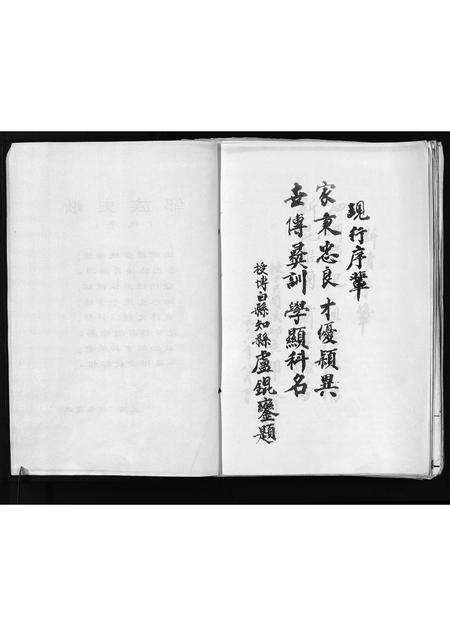 現行序輩
家秉忠良 才優穎異
世傳彛訓 學顯科名
授博白縣知縣盧錕鑾題